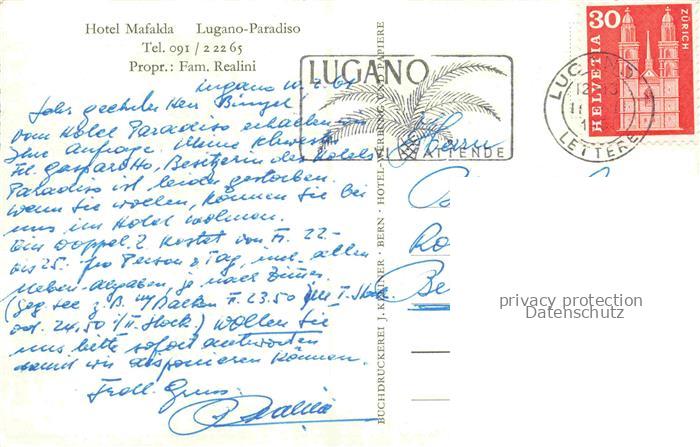 Hotel Mafalda Lugano-Paradiso
Tel. 091 / 2 22 65
Propr.: Fam. Realini
Lugano
Sehr geehrter Herr
vom Hotel Paradiso erhalten wir
Ihre Anfrage. Meine
Frl. Besitzerin des Hotels
Paradiso ist leider gestorben.
Wenn Sie wollen, können Sie bei
uns im Hotel wohnen.
Ein Doppel.Z. kostet von Fr. 22.-
bis 25.- pro Person & Tag, incl. allen
Neben-Abgaben, je nach Zimmer.
(geg See z.B. m/Balkon Fr. 23.50 im I. Stock
od. 24.50 / II. Stock.) Wollen Sie
uns bitte sofort antworten
damit wir disponieren können.
Frdl. Gruss
BUCHDRUCKEREI J. KRAINER - BERN - HOTEL-WERBUNG UND PAPIERE
LUGANO
VI ATTENDE
LUGANO
LETTERE
30
HELVETIA
ZÜRICH
Herrn
Be
privacy protection
Datenschutz